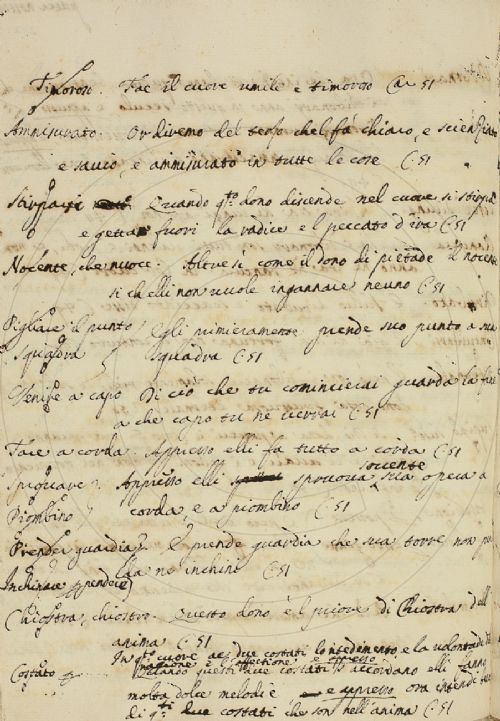 Timoroso. Fae il cuore umile e timoroso Car 51
Ammisurato. Or diremo del terso chel fá chiaro, e sciendiato
e savio, e ammisurato in tutte le cose C. 51
Quando q.to dono discende nel cuore si stirpa
e getta fuori la radice e 'l peccato d'ira C. 51
Nocente, che nuoce. Altresì come il dono di pietade il nocente
si ch elli non vuole ingannare neuno C. 51
Pigliare il punto Egli primieramente prende suo punto a sua
Squadra squadra C. 51
Venire a capo Di ciò che tu comincierai guarda la fine
a che capo tu ne verrai C. 51
Fare a corda. Appresso elli fa tutto a corda C. 51
Appresso elli spruova sovente sua opera a
Piombino corda e a piombino C. 51
Prender guardia. E prende guardia che sua torre non pen
Inchinare pendere da ne inchini C. 51
Chiostra, chiostro. Questo dono è 'l priore di Chiostra dell'
anima C. 51
Costato In q.to cuore ae due costati lo 'ntendimento e la volontade
ragione e l'affectione e appresso
Quando questi due costati si accordano elli fanno
molta dolce melodi è e appresso ora intendi
di q.ti due costati che son nell'anima C. 51